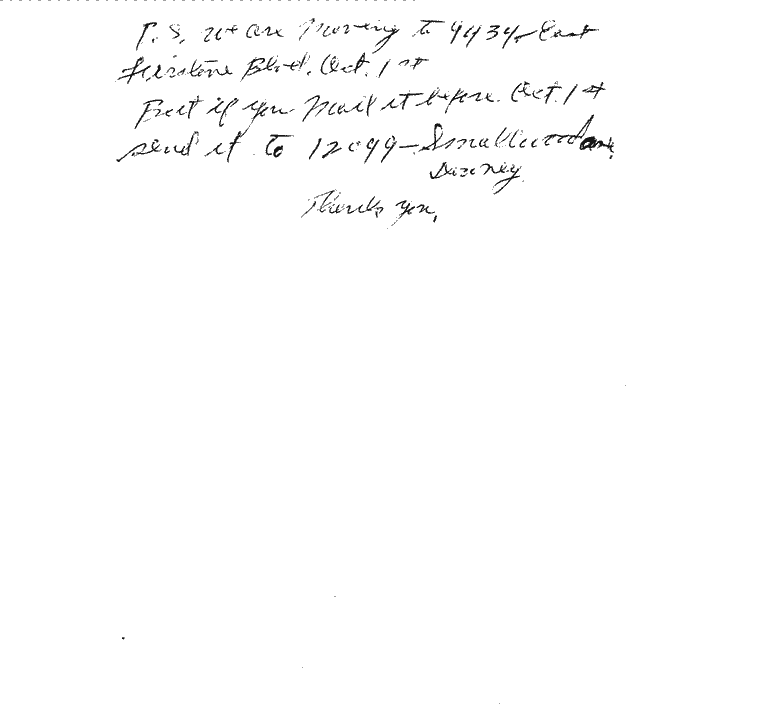 P.S. we are moving to 9434 - East
Firestone Blvd. Oct. 1st
But if you mail it before Oct. 1st
send it to 12099 - Smallwood ave.
Downey
Thank you,